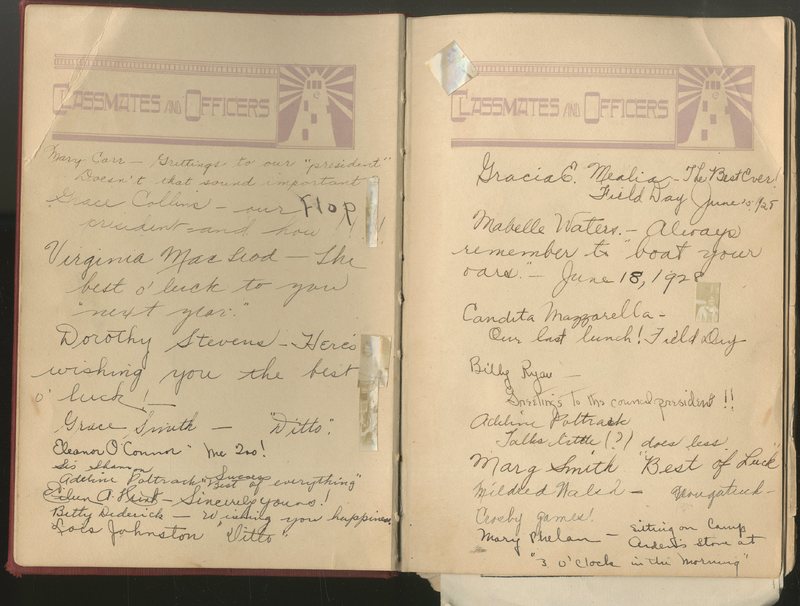 CLASSMATES AND OFFICERS
Mary Carr - Greetings to our "president"
Doesn't that sound important
Grace Collins - our Flop
president - and how !!!
Virginia MacLeod - The
best o' luck to you
"next year."
Dorothy Stevens - Here's
wishing you the best
o' luck!
Grace Smith - "Ditto".
Eleanor O'Connor - "Me Too!
Sis Shannon
Adeline Poltrack "Best of everything"
Success
Eileen A. - Sincerely Yours!
Betty Diderick - Wishing you happiness
Lois Johnston "Ditto"
CLASSMATES AND OFFICERS
Gracia E. Mealia - The Best Ever!
Field Day June 15, 1928
Mabelle Waters. - Always
remember to "boat your
oars. - June 18, 1928
Candita Mazzarella -
Our last lunch! Field Day
Billy Ryan -
Greetings to the council president!!
Adeline Poltrack
Talks little (?) does less
Marg Smith "Best of Luck"
Mildred Walsh - Naugatuck -
Crosby games!
Mary Phelan - Sitting on Camp
Store at
"3 O'Clock in the Morning"